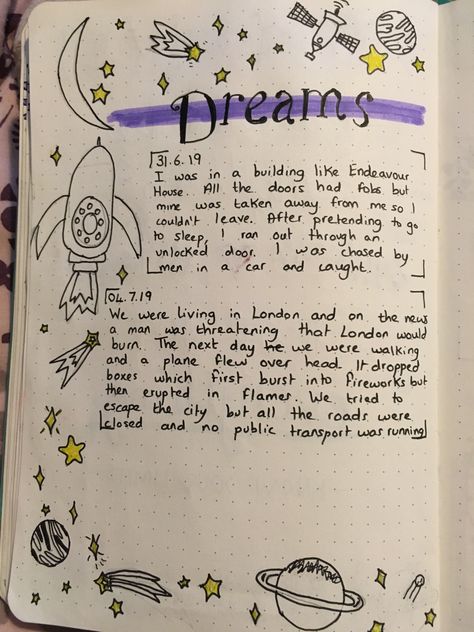 Dreams
31.6.19
I was in a building like Endeavour
House. All the doors had fobs but
mine was taken away from me so I
couldn't leave. After pretending to go
to sleep, I ran out through an
unlocked door. I was chased by
men in a car and caught.
04.7.19
We were living in London and on the news
a man was threatening that London would
burn. The next day we were walking
and a plane flew over head. It dropped
boxes which first burst into fireworks but
then erupted in flames. We tried to
escape the city but all the roads were
closed and no public transport was running